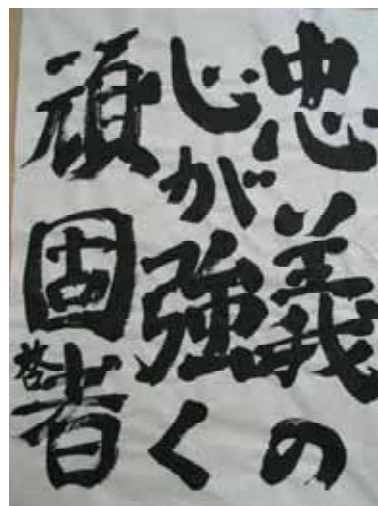 忠義の
心が強く
頑固者
啓